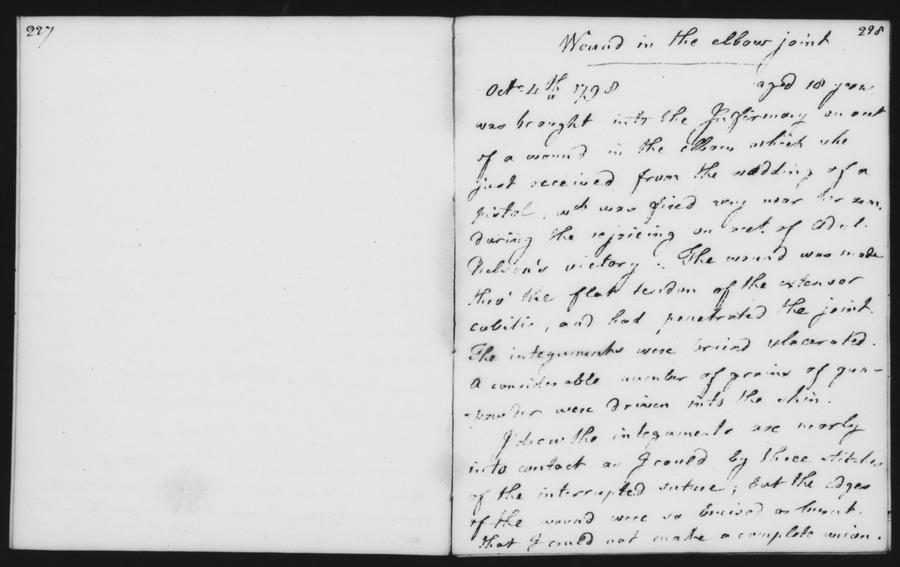 227
298
Wound in the elbow joint
Octr 4th 1798 aged 18 years
was brought into the Infirmary on acct
of a wound in the elbow which she
just received from the wadding of a
pistol, wch was fired very near her arm,
during the rejoicing on acct. of Adml.
Nelson's victory. The wound was made
thro' the flat tendon of the extensor
cubiti, and had penetrated the joint.
The integuments were bruised & lacerated.
A considerable number of grains of gun-
-powder were driven into the skin.
I drew the integuments as nearly
into contact as I could by three stitches
of the interrupted suture; but the edges
of the wound were so bruised or burnt.
that I could not make a complete union.